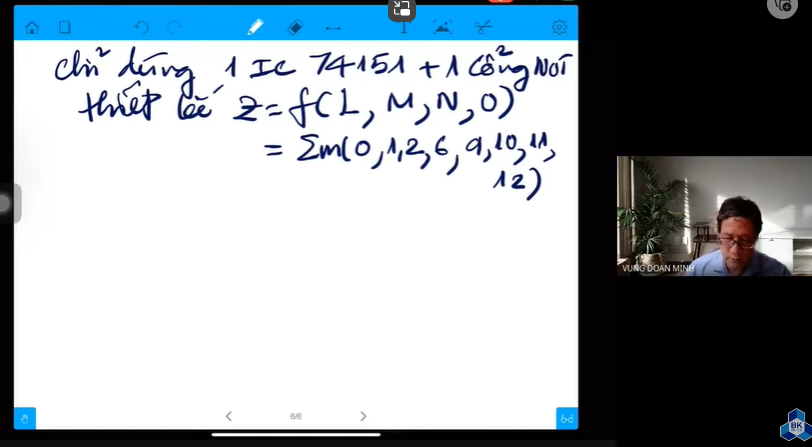 Chỉ dùng 1 IC 74151 + 1 cổng NOT
thiết kế Z = f(L, M, N, O)
= Σm(0, 1, 2, 6, 9, 10, 11,
12)
VUNG DOAN MINH
6/6
BK